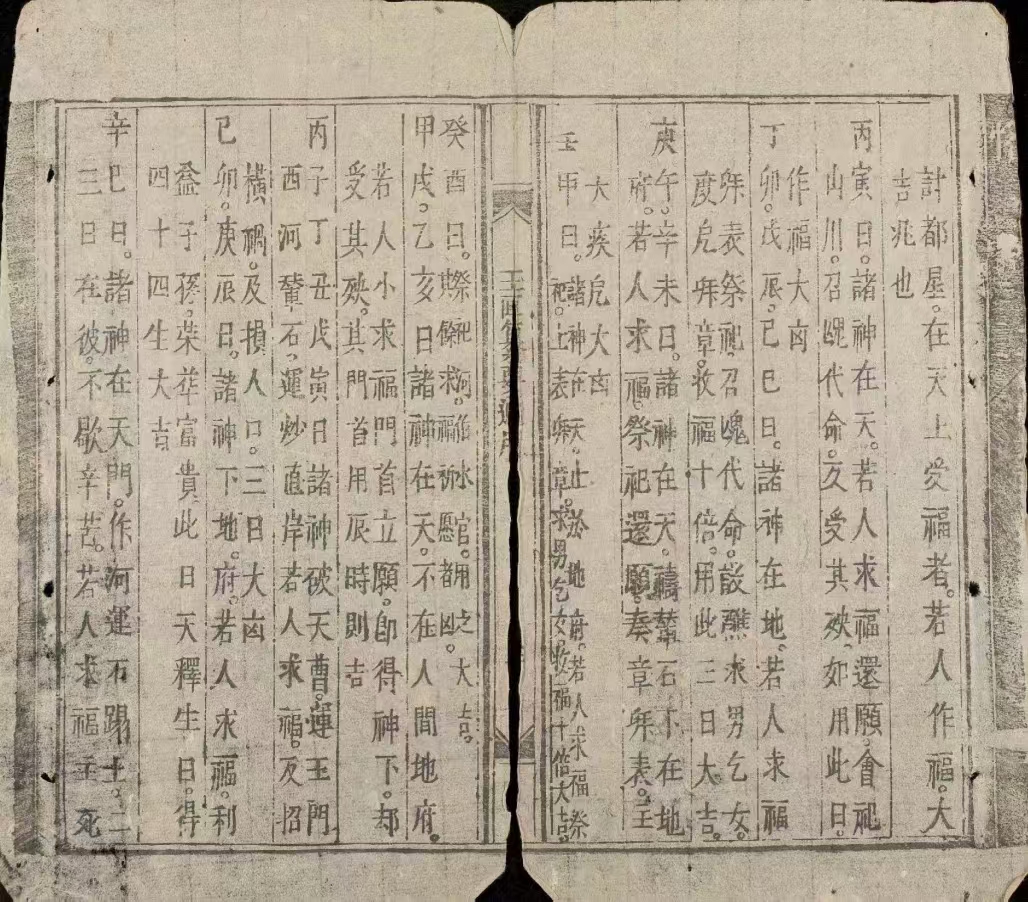 計都星。在天上。受福者。若人作福。大
吉兆也
丙寅日。諸神在天。若人求福還願。會祀
山川。召魂代命。反受其殃。如用此日。
作福大凶
丁卯。戊辰。己巳日。諸神在地。若人求福
祭表祭祀。召魂代命。設醮求男乞女。
度厄章。收福十倍。用此三日大吉。
庚午。辛未日。諸神在天。禱輦石不在地
府。若人求福。祭祀還願。奏章表。主
大疾厄大凶
壬申日。諸神在天上於地府。若人求福祭
祀。上表章。求男乞女。收福十倍大吉。
癸酉日。祭祀河伯水官。用之大吉。
餘求福祈愿者凶。
甲戌。乙亥日諸神在天。不在人間地府。
若人小求福門首立願。即得神下。却
受其殃。其門首用辰時則吉
丙子丁丑戊寅日諸神被天曹。運玉門
西河輦石。運炒直岸若人求福。反招
橫禍。及損人口。三日大凶
己卯。庚辰日。諸神下地。府。若人求福。利
益子孫。榮華富貴此日天釋生日。得
四十四生大吉
辛巳日。諸神在天門。作河運石踢土。二
三日在彼。不歇辛苦。若人求福主死